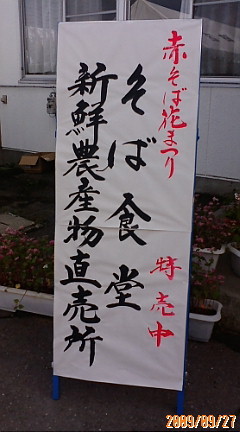 赤そば花まつり 特売中
そば食堂
新鮮農産物直売所
2009/09/27